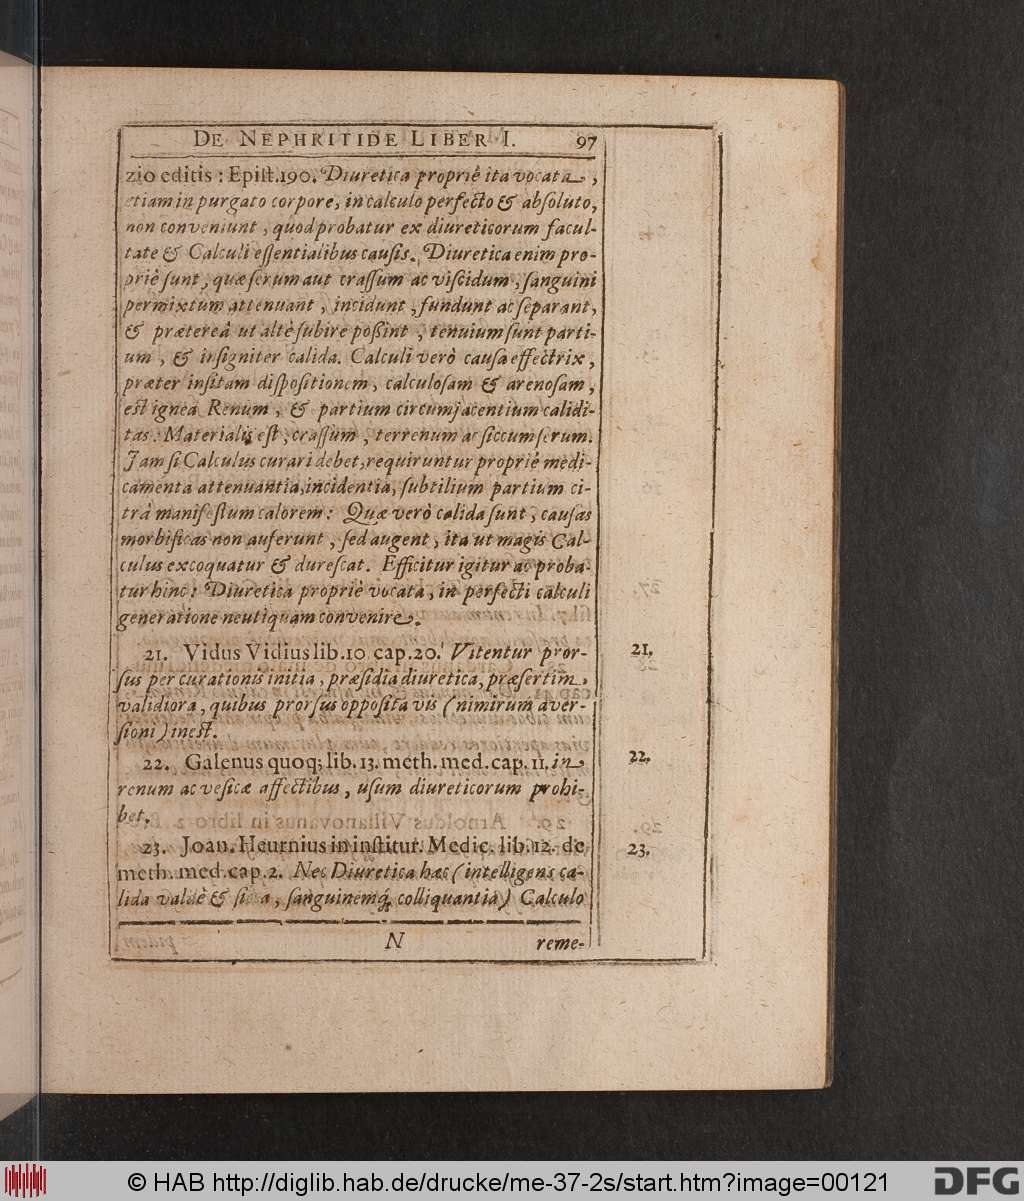 DE NEPHRITIDE LIBER I. 97
zio editis : Epist.190. Diuretica propriè ita vocata,
etiam in purgato corpore, in calculo perfecto & absoluto,
non conveniunt, quod probatur ex diureticorum facul-
tate & Calculi essentialibus causis. Diuretica enim pro-
priè sunt, quæ serum aut crassum ac viscidum, sanguini
permixtum attenuant, incidunt, fundunt ac separant,
& prætereà ut altè subire possint, tenuium sunt parti-
um, & insigniter calida. Calculi verò causa effectrix,
præter insitam dispositionem, calculosam & arenosam,
est ignea Renum, & partium circumjacentium calidi-
tas: Materialis est, crassum, terrenum ac siccum serum.
Jam si Calculus curari debet, requiruntur propriè medi-
camenta attenuantia, incidentia, subtilium partium ci-
trà manifestum calorem: Quæ verò calida sunt, causas
morbificas non auferunt, sed augent, ita ut magis Cal-
culus excoquatur & durescat. Efficitur igitur ac proba-
tur hinc: Diuretica propriè vocata, in perfecti calculi
generatione neutiquam convenire.
21. Vidus Vidius lib.10 cap.20. Vitentur pror-
sus per curationis initia, præsidia diuretica, præsertim
validiora, quibus prorsus opposita vis (nimirum aver-
sioni) inest.
22. Galenus quoq; lib.13. meth.med.cap.11. in
renum ac vesicæ affectibus, usum diureticorum prohi-
bet.
23. Joan. Heurnius in institut. Medic. lib.12. de
meth.med.cap.2. Nec Diuretica hæc (intelligens ca-
lida valdè & sicca, sanguinemq; colliquantia) Calculo
N reme-
21.
22.
23.
© HAB http://diglib.hab.de/drucke/me-37-2s/start.htm?image=00121
DFG